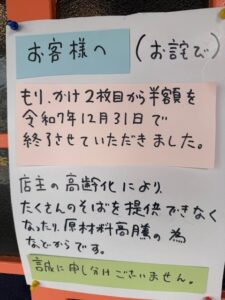 お客様へ (お詫び)
もり、かけ2枚目から半額を
令和7年12月31日で
終了させていただきました。
店主の高齢化により
たくさんのそばを提供できなく
なったり、原材料高騰の為
などからです。
誠に申し分けございません。